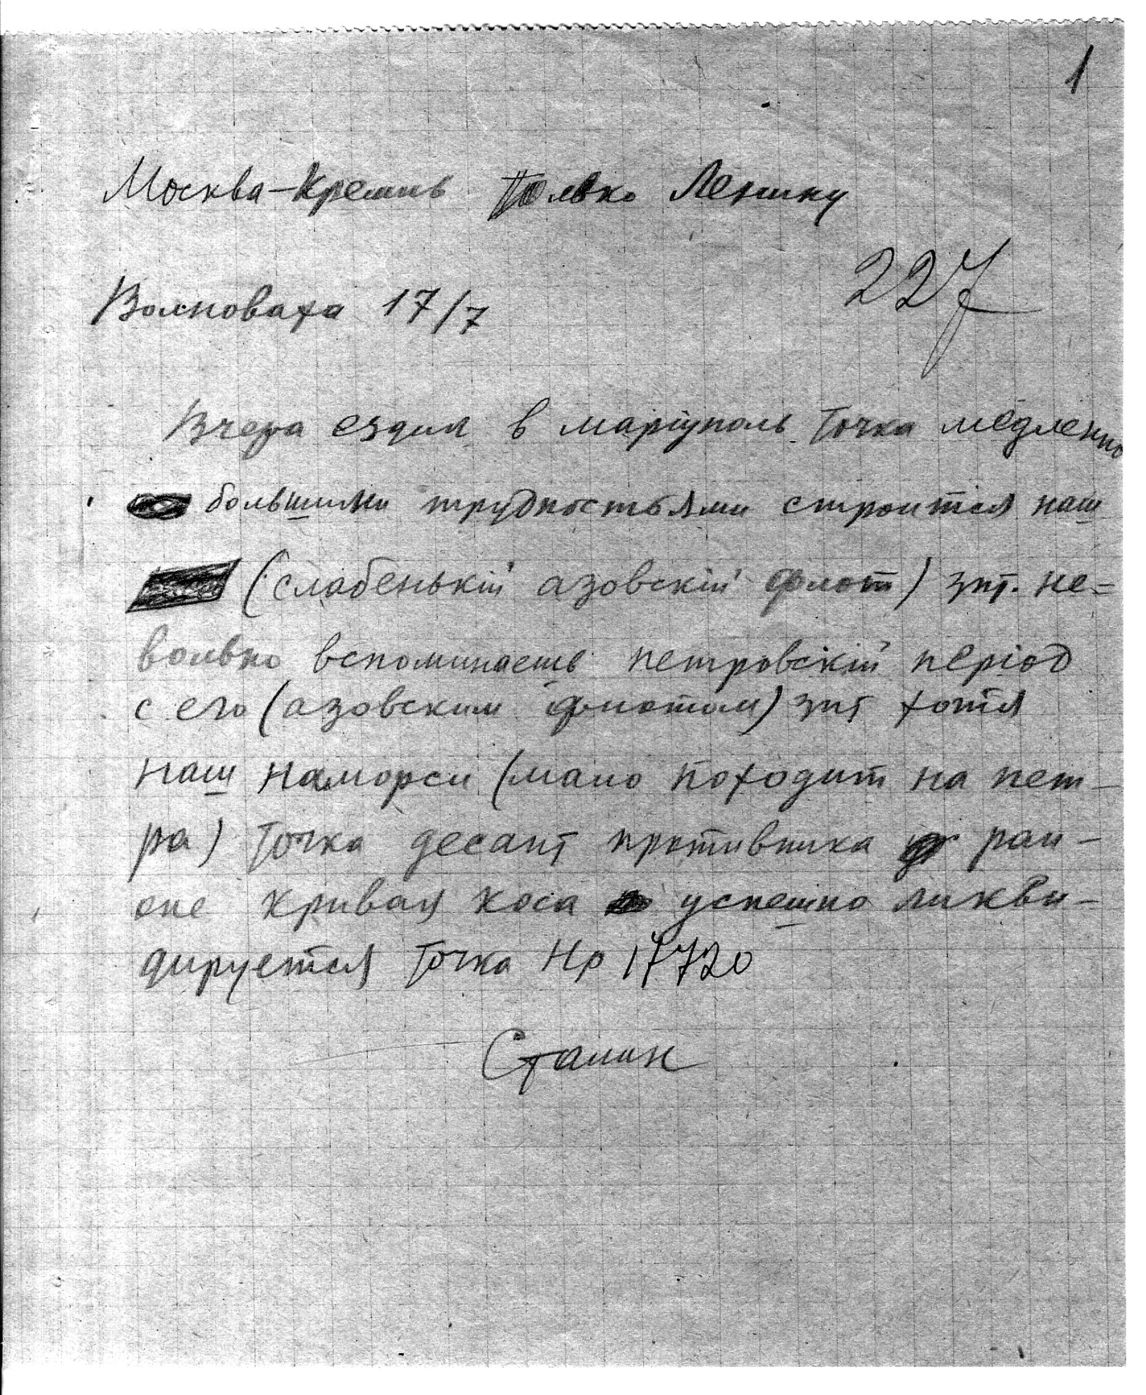 1
Москва-Кремль Только Ленину
227
Волноваха 17/7
Вчера ездил в маріуполь точка медленно
большими трудностьями строится наш
(слабенькій азовскій флот) зпт. не=
вольно вспоминаешь петровскій період
с его (азовским флотом) зпт хотя
наш наморси (мало походит на пет-
ра) точка десант противника рай-
оне кривая коса успешно ликви-
дируется точка Нр 17720
Сталин